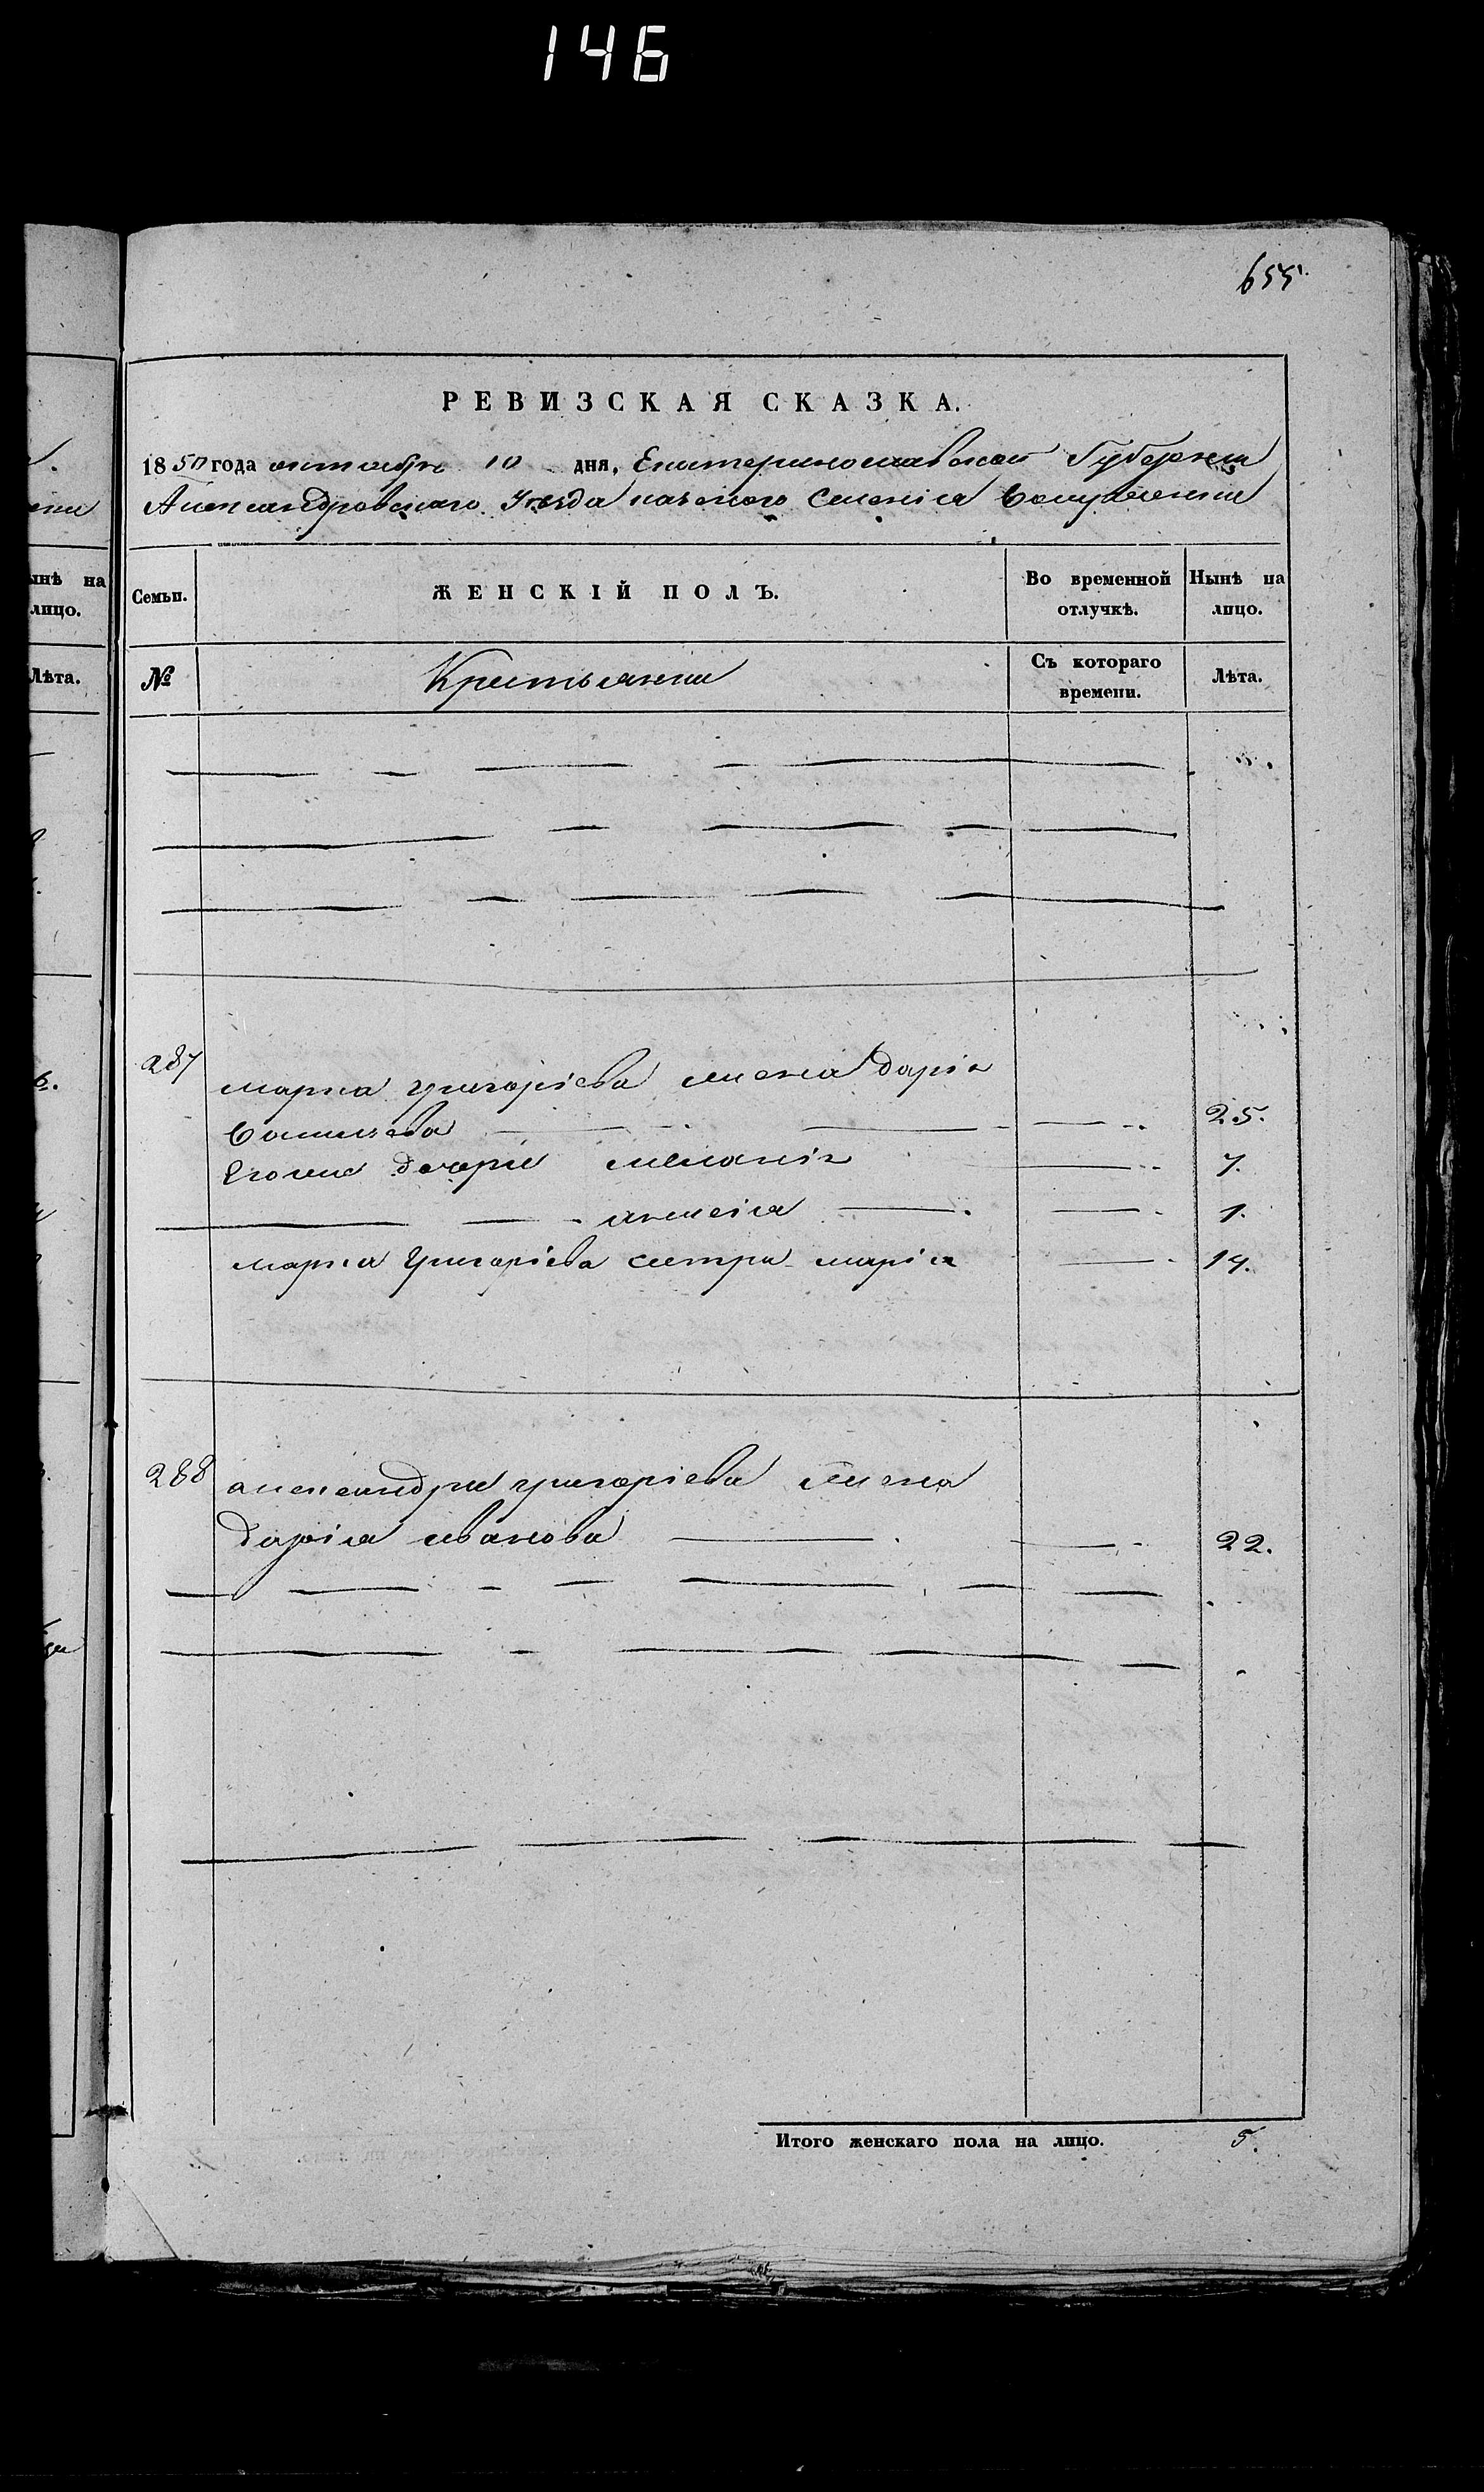 146
655.
РЕВИЗСКАЯ СКАЗКА.
1850 года октября 10 дня, Екатеринославской Губернии
Александровского Уезда казеного Селенія
Семьи.
ЖЕНСКІЙ ПОЛЪ.
Во временной отлучкѣ.
Нынѣ на лицо.
№
Крестьянки
Съ котораго времени.
Лѣта.
287 марка григоріева жена дарія
25.
Его дочери меланія 7.
1.
марка Григоріева сестра марія 14.
288 александра григоріева жена
Дарія иванова 22.
Итого женскаго пола на лицо. 5.
ынѣ на
лицо.
Лѣта.